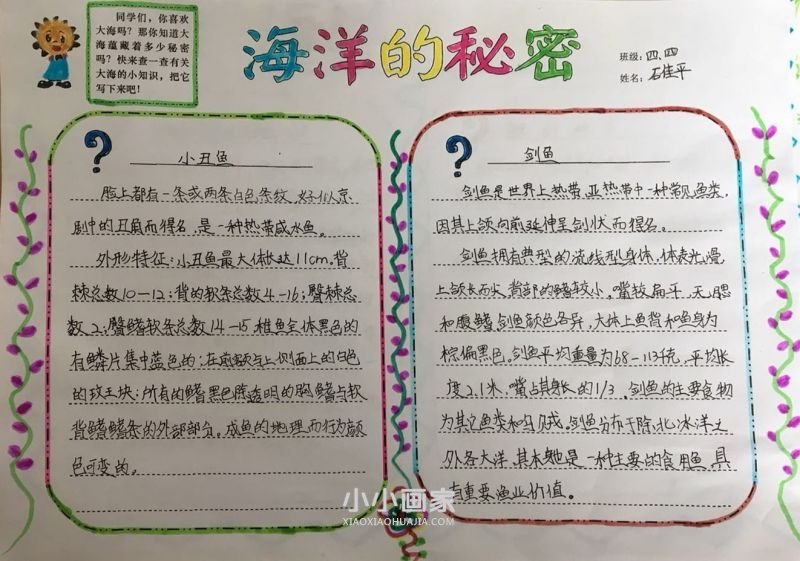 同学们，你喜欢
大海吗？那你知道大
海蕴藏着多少秘密
吗？快来查一查有关
大海的小知识，把它
写下来吧！
海洋的秘密
班级：四.四
姓名：石佳平
?
小丑鱼
脸上都有一条或两条白色条纹，好似京
剧中的丑角而得名，是一种热带咸水鱼。
外形特征：小丑鱼最大体长达11cm，背
棘总数10—12；背的软条总数4—16；臀棘总
数2；臀鳍软条总数14—15，稚鱼全体黑色的
有鳞片集中蓝色的；在与上侧面上的白色
的块；所有的鳍黑色除透明的胸鳍与软
背鳍鳍条的外部部分。成鱼的地理而行为颜
色可变的。
?
剑鱼
剑鱼是世界上热带、亚热带中一种常见鱼类，
因其上颌向前延伸呈剑状而得名。
剑鱼拥有典型的流线型身体，体表光滑
上颌长而尖，背部的鳍较小，嘴较扁平，无腮
和腹鳍，剑鱼颜色各异，大体上鱼背和鱼身为
棕偏黑色。剑鱼平均重量为68—113千克，平均长
度2.1米，嘴占其身长的1/3，剑鱼的主要食物
为其它鱼类和乌贼。剑鱼分布于除北冰洋之
外各大洋，其本是一种主要的食用鱼，具
有重要渔业价值。
小小画家
XIAOXIAOHUAJIA.COM